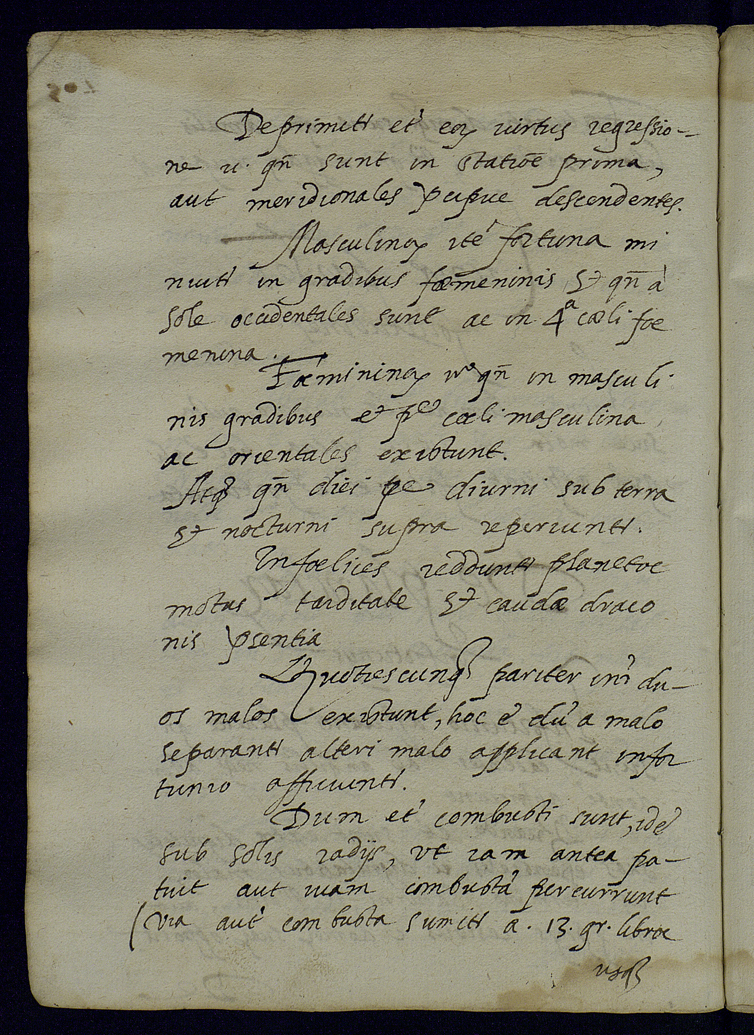 Deprimitr et' eoꝝ virtus regressio-
ne v. qn̄ sunt in statioē prima,
aut meridionales p̄cipue descendentes.
Masculinoꝝ itē fortuna mi
nuitr in gradibus fœmeninis et qn̄ a
sole occidentales sunt ac in 4ª cœli fœ
menina.
Fœmininoꝝ v° qn̄ in masculi
nis gradibus et pte cœli masculina,
ac orientales existunt.
Atqꝫ qn̄ diei pte diurni sub terra
et nocturni supra reperiuntr.
Infœlices reddunt planetæ
motus tarditate et caudæ draco
nis p̄sentia
Quotiescunqꝫ pariter intr du-
os malos existunt, hoc ē dū a malo
separantr alteri malo applicant infor
tunio afficiuntr.
Dum et' combusti sunt, idē
sub solis radijs, ut iam antea pa-
tuit aut viam combustā percurrunt
(via aut' combusta sumitr a. 13. gr. libræ
usqꝫ